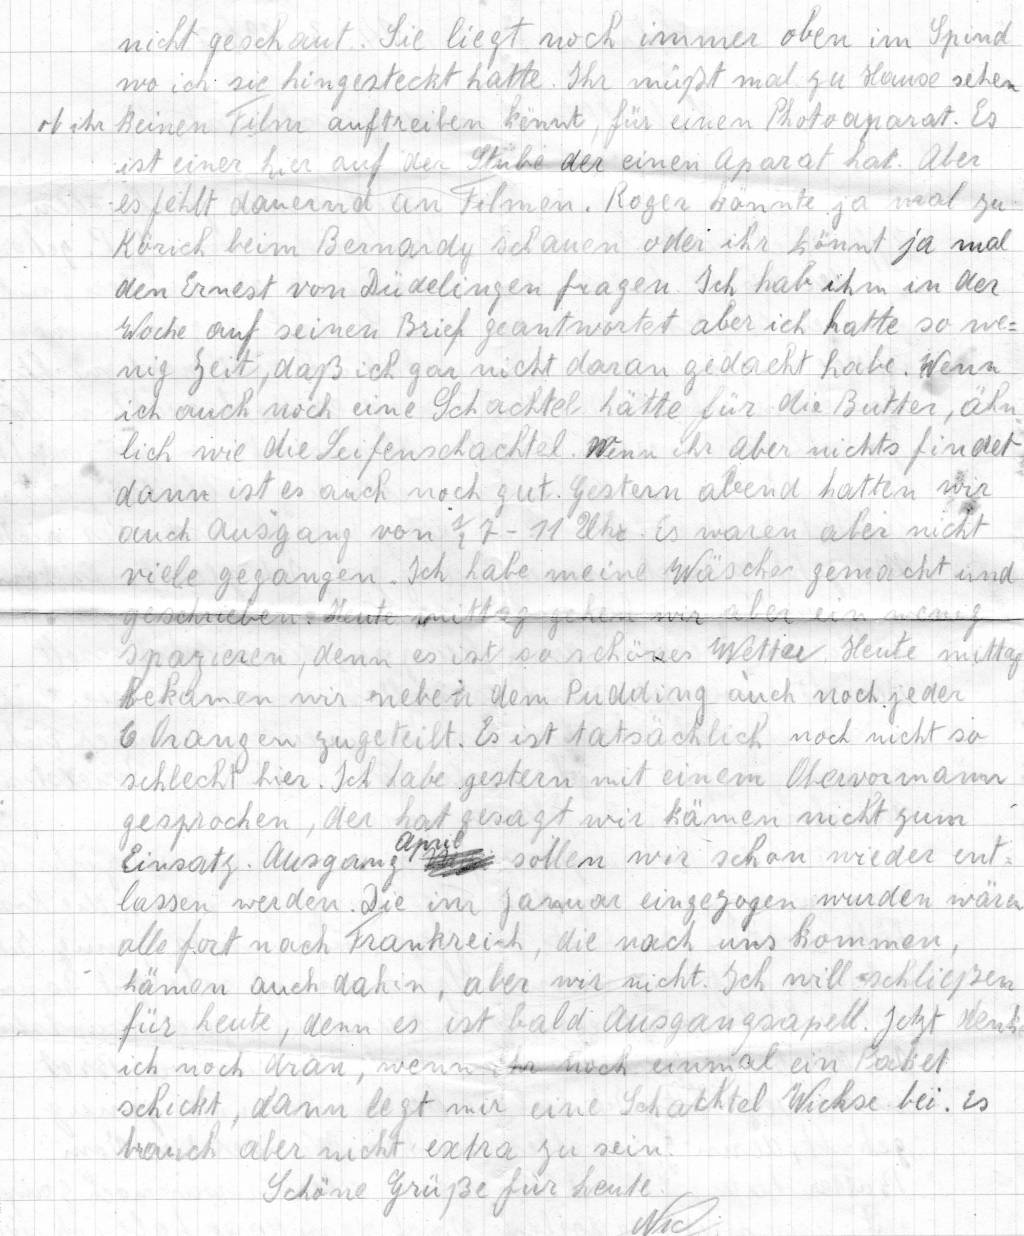 nicht geschaut. Sie liegt noch immer oben im Spind
wo ich sie hingesteckt hatte. Ihr müßt mal zu Hause sehen
ob ihr keinen Film auftreiben könnt, für einen Photoaparat. Es
ist einer hier auf der Stube der einen Aparat hat. Aber
es fehlt dauernd an Filmen. Roger könnte ja mal zu
Körich beim Bernardy schauen oder ihr könnt ja mal
den Ernest von Düdelingen fragen. Ich hab ihm in der
Woche auf seinen Brief geantwortet aber ich hatte so we=
nig Zeit, daß ich gar nicht daran gedacht habe. Wenn
ich auch noch eine Schachtel hätte für die Butter, ähn
lich wie die Seifenschachtel. Wenn ihr aber nichts findet
dann ist es auch noch gut. Gestern abend hatten wir
auch Ausgang von ½ 7 - 11 Uhr. Es waren aber nicht
viele gegangen. Ich habe meine Wäsche gemacht und
geschrieben. Heute mittag gehen wir aber ein wenig
spazieren, denn es ist so schönes Wetter. Heute mittag
bekamen wir neben dem Pudding auch noch jeder
6 Orangen zugeteilt. Es ist tatsächlich noch nicht so
schlecht hier. Ich habe gestern mit einem Obervormann
gesprochen, der hat gesagt wir kämen nicht zum
Einsatz. Ausgang April sollen wir schon wieder ent=
lassen werden. Die im Januar eingezogen wurden wären
alle fort nach Frankreich, die nach uns kommen,
kämen auch dahin, aber wir nicht. Ich will schließen
für heute, denn es ist bald Ausgangsapell. Jetzt denk
ich noch dran, wenn ihr noch einmal ein Paket
schickt, dann legt mir eine Schachtel Wichse bei. Es
brauch aber nicht extra zu sein.
Schöne Grüße für heute.
Nic